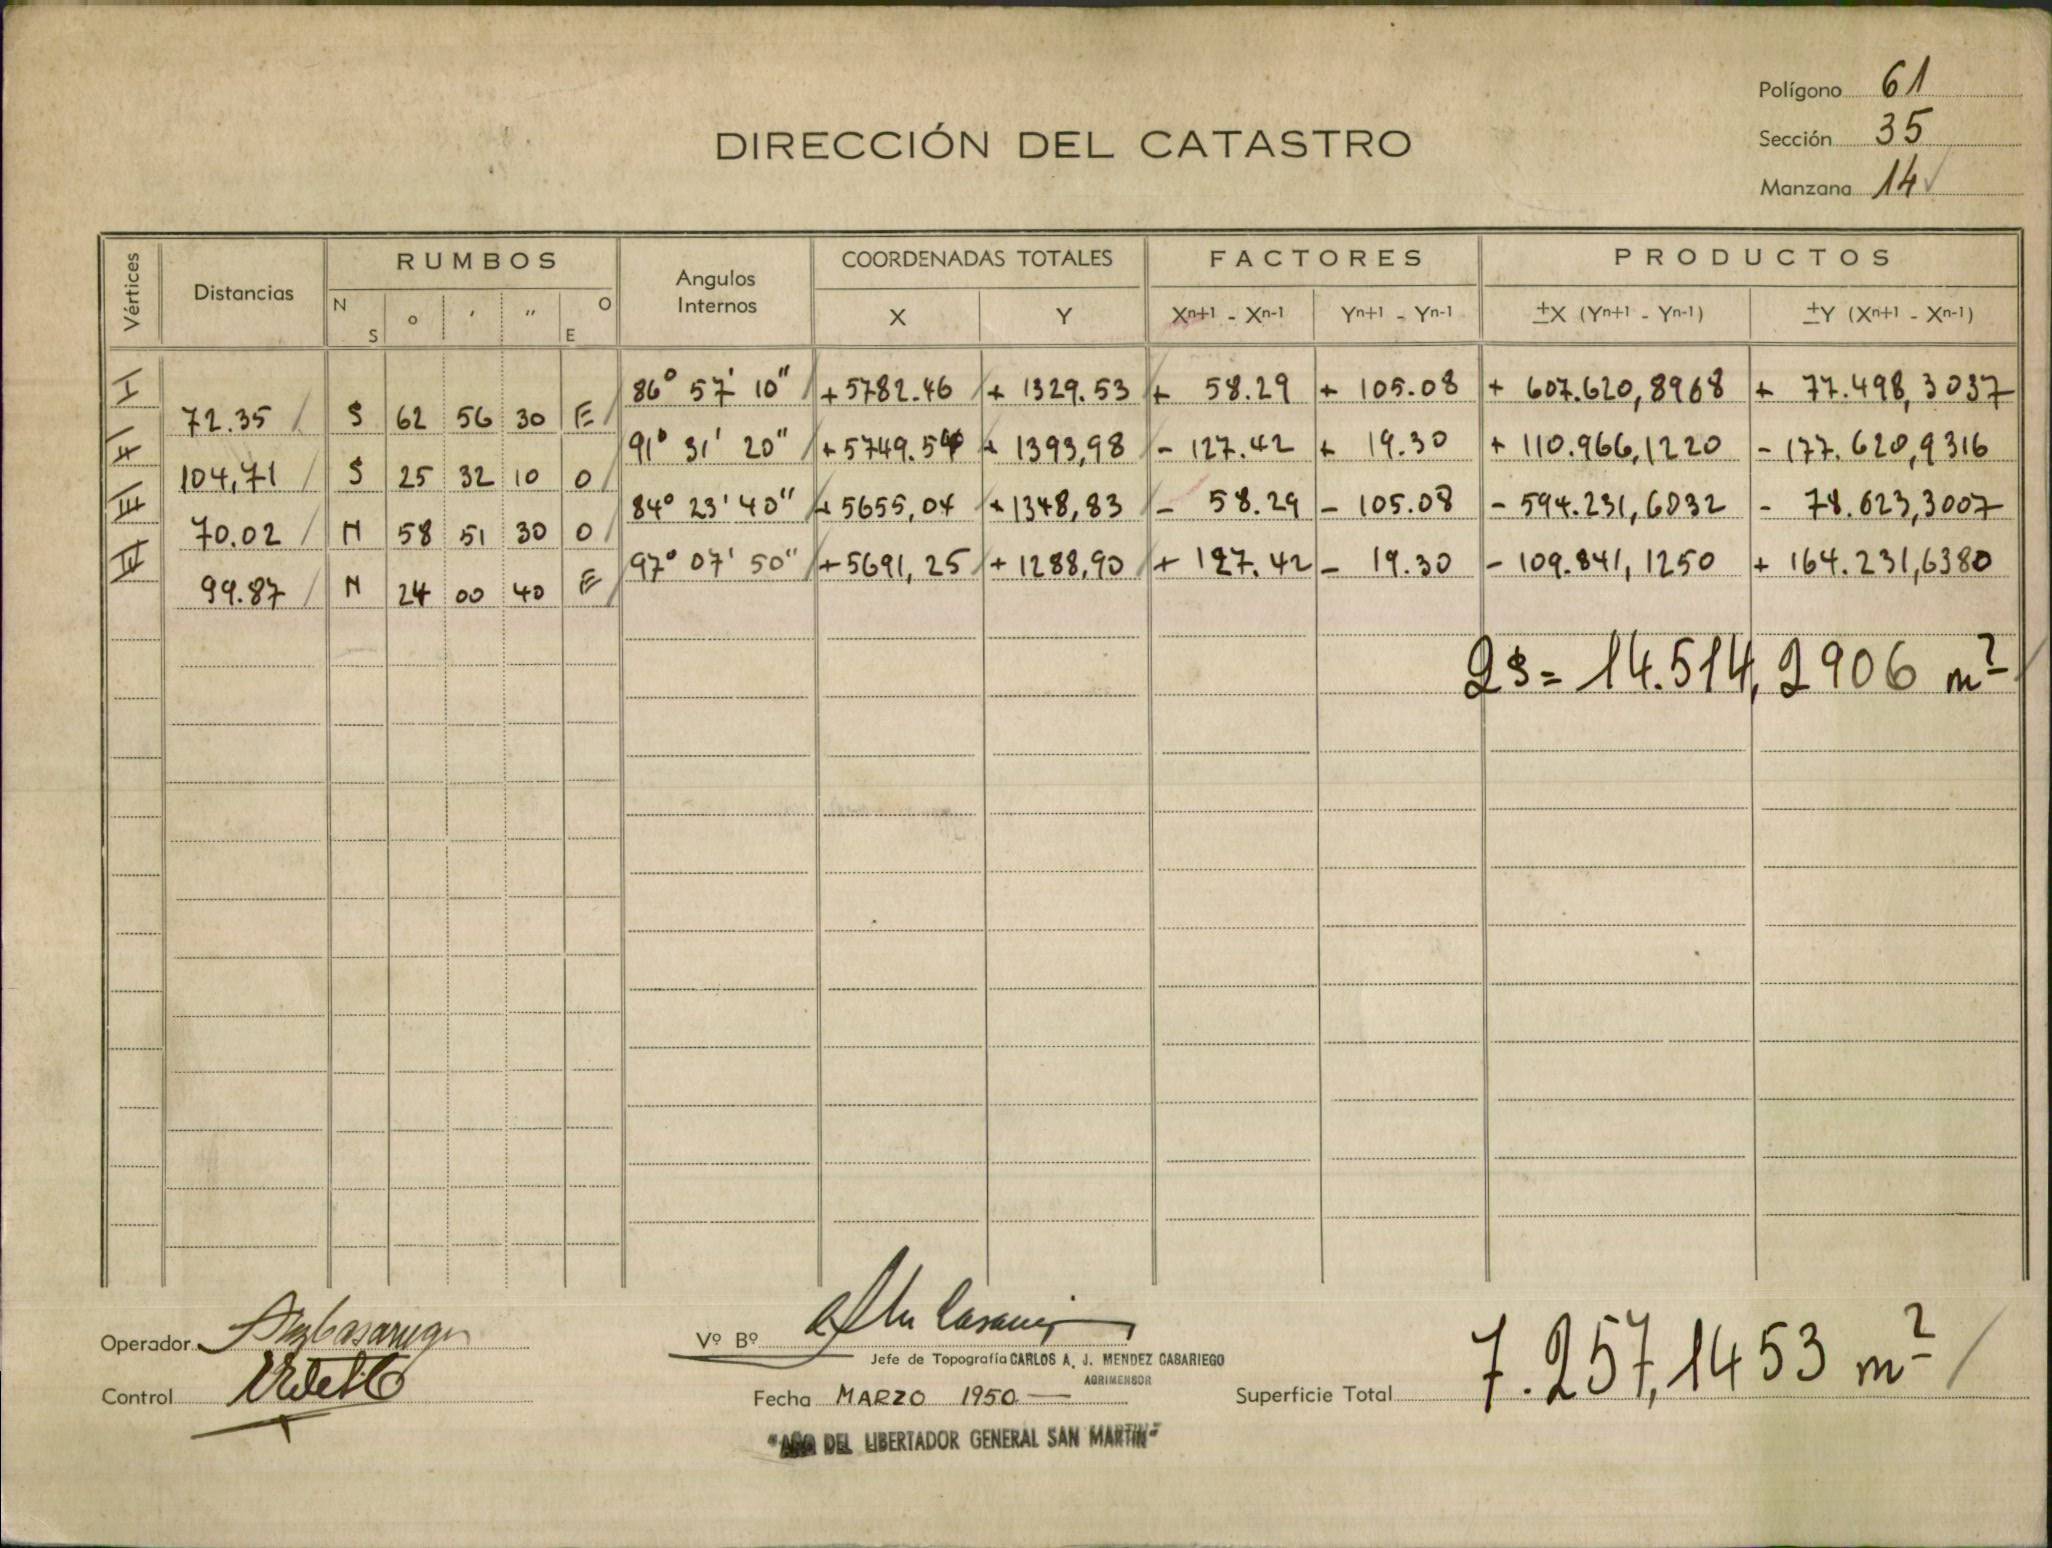 Polígono 61
DIRECCIÓN DEL CATASTRO
Sección 35
Manzana 14
Vértices Distancias RUMBOS Angulos Internos COORDENADAS TOTALES FACTORES PRODUCTOS
N S o ' " O E X Y Xn+1 - Xn-1 Yn+1 - Yn-1 ±X (Yn+1 - Yn-1) ±Y (Xn+1 - Xn-1)
I 86° 57' 10" +5782.46 + 1329.53 + 58.29 + 105.08 + 607.620,8968 + 77.498,3037
72.35 S 62 56 30 E
91° 31' 20" +5749.54 + 1393,98 - 127.42 + 19.30 + 110.966,1220 - 177.620,9316
104,71 S 25 32 10 O
84° 23' 40" +5655,04 +1348,83 - 58.29 - 105.08 - 594.231,6032 - 78.623,3007
70.02 N 58 51 30 O
97° 07' 50" +5691,25 + 1288,90 + 127.42 - 19.30 - 109.841,1250 + 164.231,6380
99.87 N 24 00 40 E
2S = 14.514,2906 m²
Operador
Vº Bº
Jefe de Topografía CARLOS A. J. MENDEZ CASARIEGO
AGRIMENSOR
Control
Fecha MARZO 1950
Superficie Total 7.257,1453 m²
"AÑO DEL LIBERTADOR GENERAL SAN MARTIN"